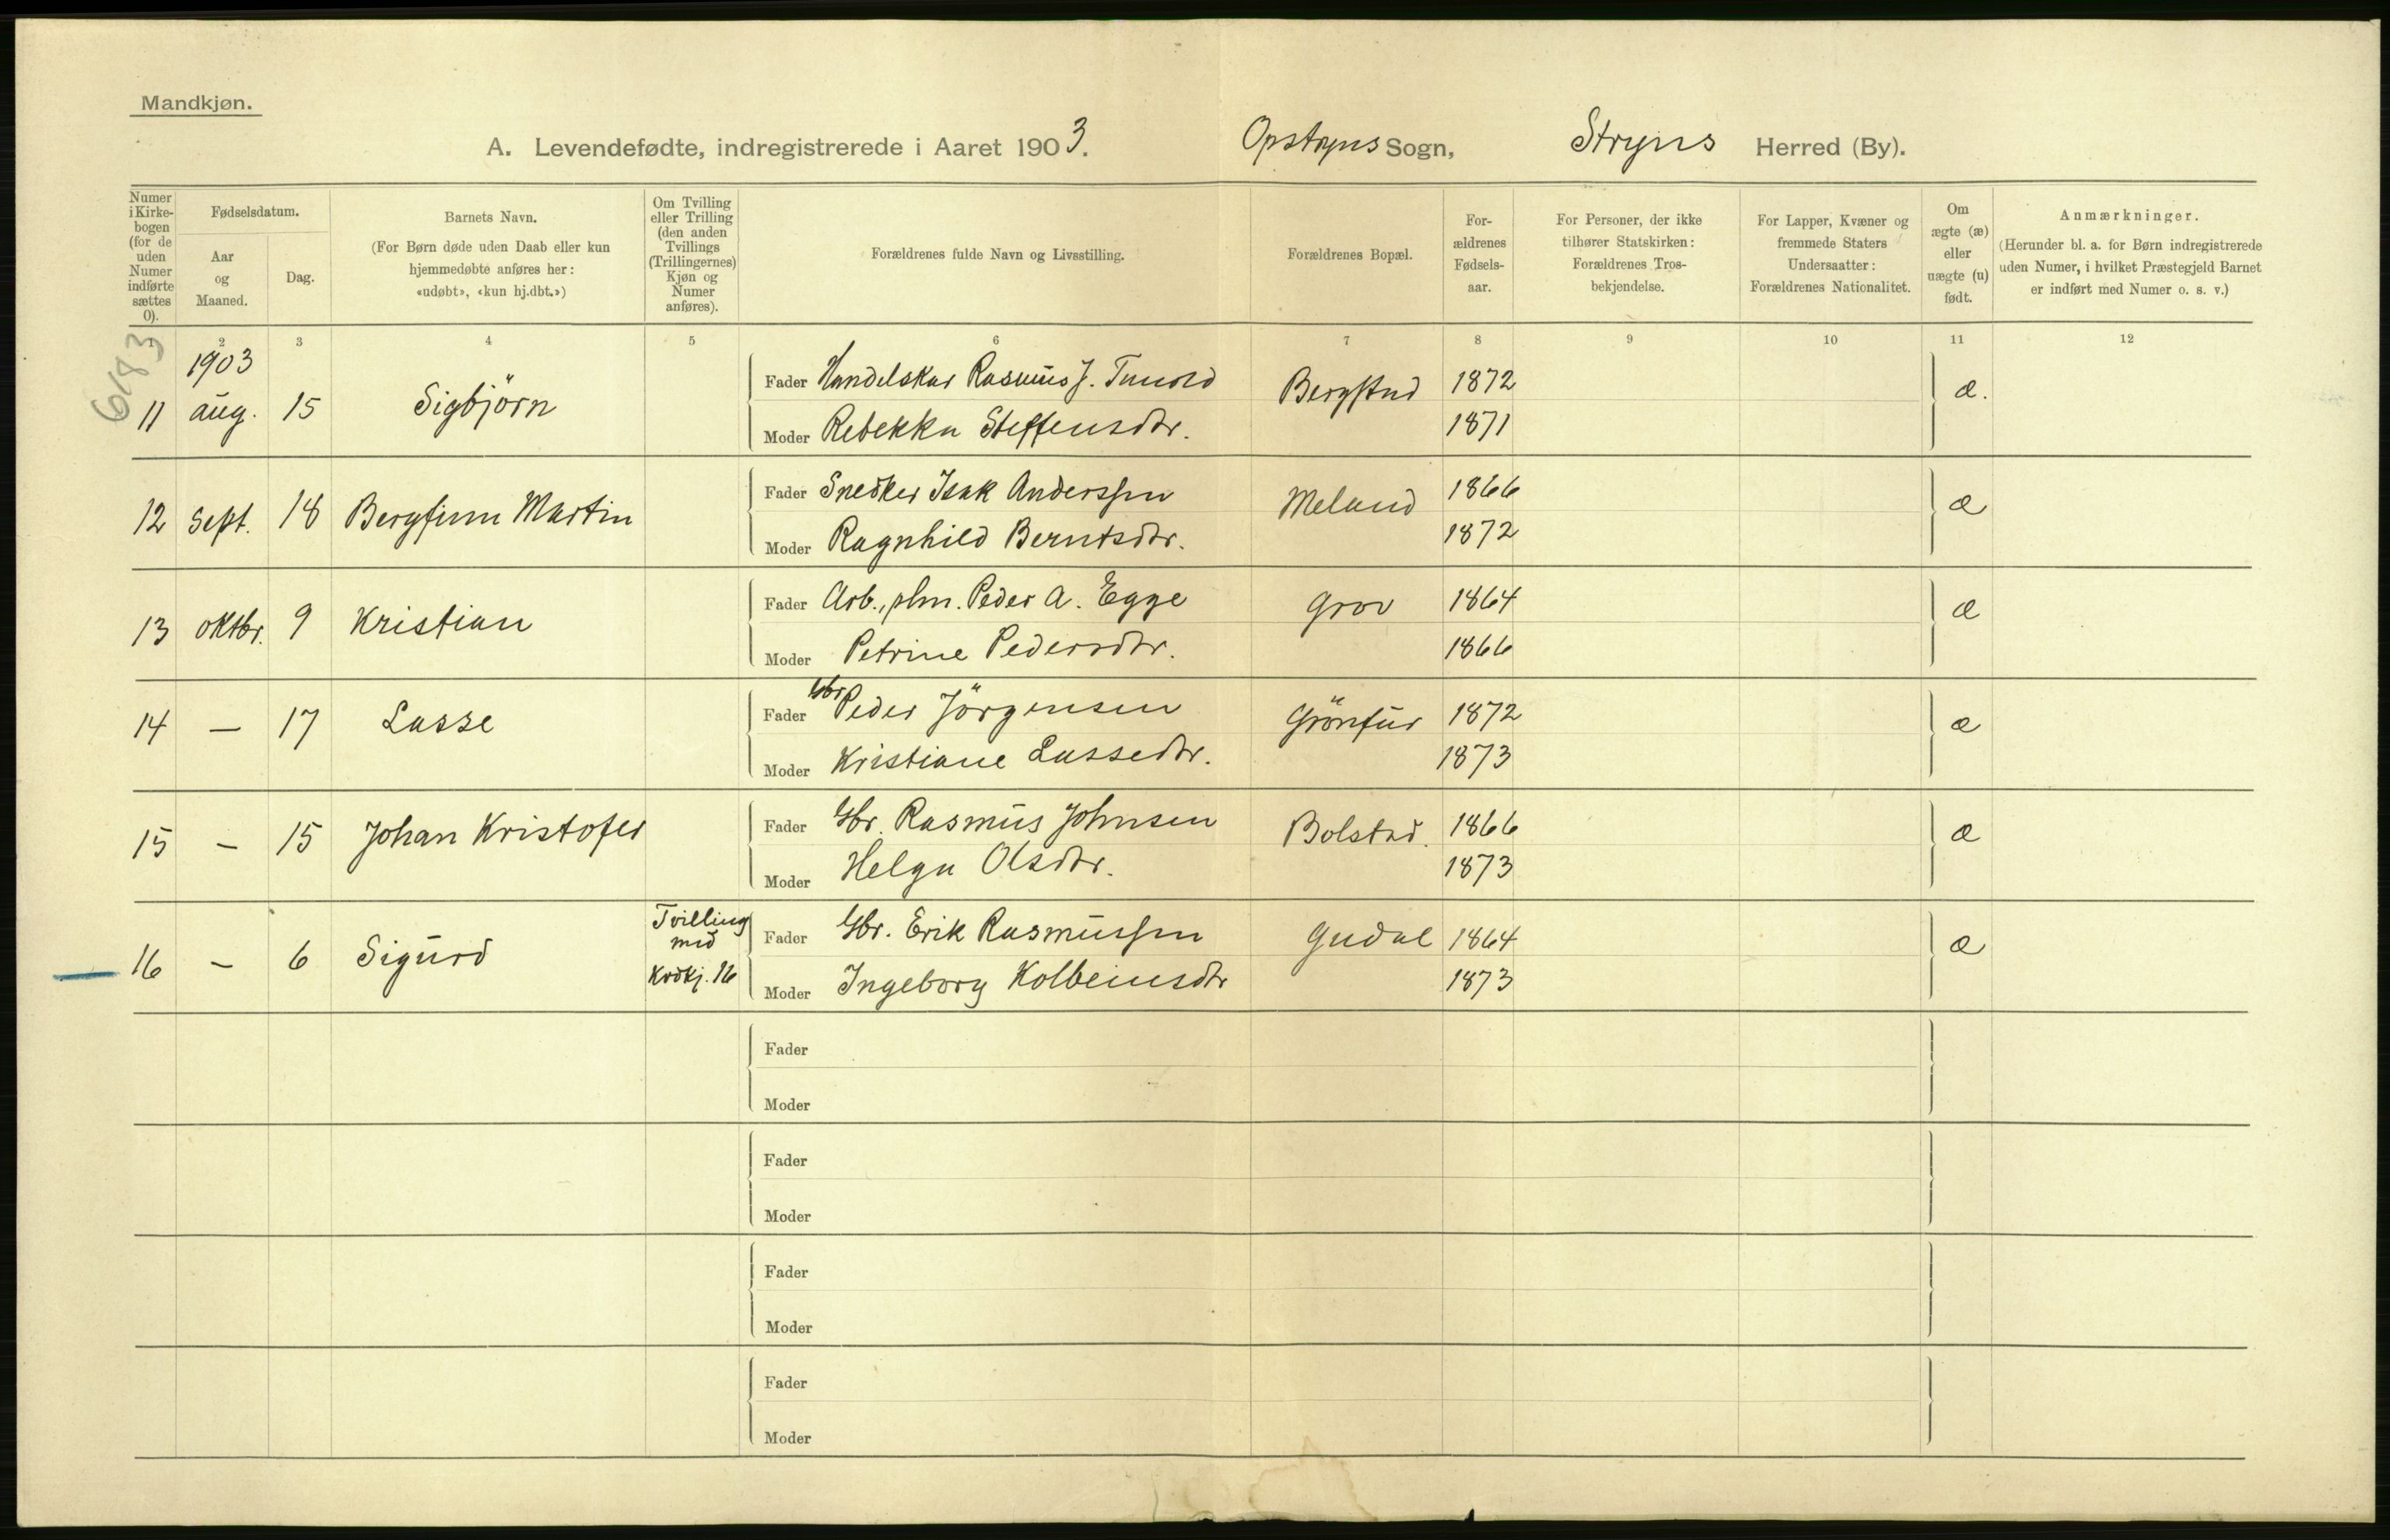 Mandkjøn.
A. Levendefødte, indregistrerede i Aaret 1903. Opstryns Sogn, Stryns Herred (By).
Numer i Kirke- bogen (for de uden Numer indførte sættes 0).
Fødselsdatum.
Aar og Maaned.
Dag.
Barnets Navn.
(For Børn døde uden Daab eller kun
hjemmedøbte anføres her:
«udøbt», «kun hj.dbt.»)
Om Tvilling
eller Trilling
(den anden
Tvillings
(Trillingernes)
Kjøn og
Numer
anføres).
Forældrenes fulde Navn og Livsstilling.
Forældrenes Bopæl.
For-
ældrenes
Fødsels-
aar.
For Personer, der ikke
tilhører Statskirken:
Forældrenes Tros-
bekjendelse.
For Lapper, Kvæner og
fremmede Staters
Undersaatter:
Forældrenes Nationalitet.
Om
ægte (æ)
eller
uægte (u)
født.
Anmærkninger.
(Herunder bl. a. for Børn indregistrerede
uden Numer, i hvilket Præstegjeld Barnet
er indført med Numer o. s. v.)
2 3 4 5 6 7 8 9 10 11 12
6183
1903
11 aug. 15 Sigbjörn Fader Handelskar Rasmus J. Tunold Bergstad 1872 æ.
Moder Rebekka Steffensdtr. 1871
12 Sept. 18 Bergfinn Martin Fader Snedker Isak Anderssen Meland 1866 æ
Moder Ragnhild Berntsdtr. 1872
13 oktbr. 9 Kristian Fader Arb., plm. Peder A. Egge Grov 1864 æ
Moder Petrine Pedersdtr. 1866
14 — 17 Lasse Fader Gbr Peder Jörgensen Grönfur 1872 æ
Moder Kristiane Lassedtr. 1873
15 – 15 Johan Kristofer Fader Gbr. Rasmus Johnsen Bolstad. 1866 æ
Moder Helga Olsdtr. 1873
16 – 6 Sigurd Tvilling med Kvdkj. 16 Fader Gbr. Erik Rasmussen Gudal 1864 æ
Moder Ingeborg Kolbeinsdtr 1873
Fader
Moder
Fader
Moder
Fader
Moder
Fader
Moder